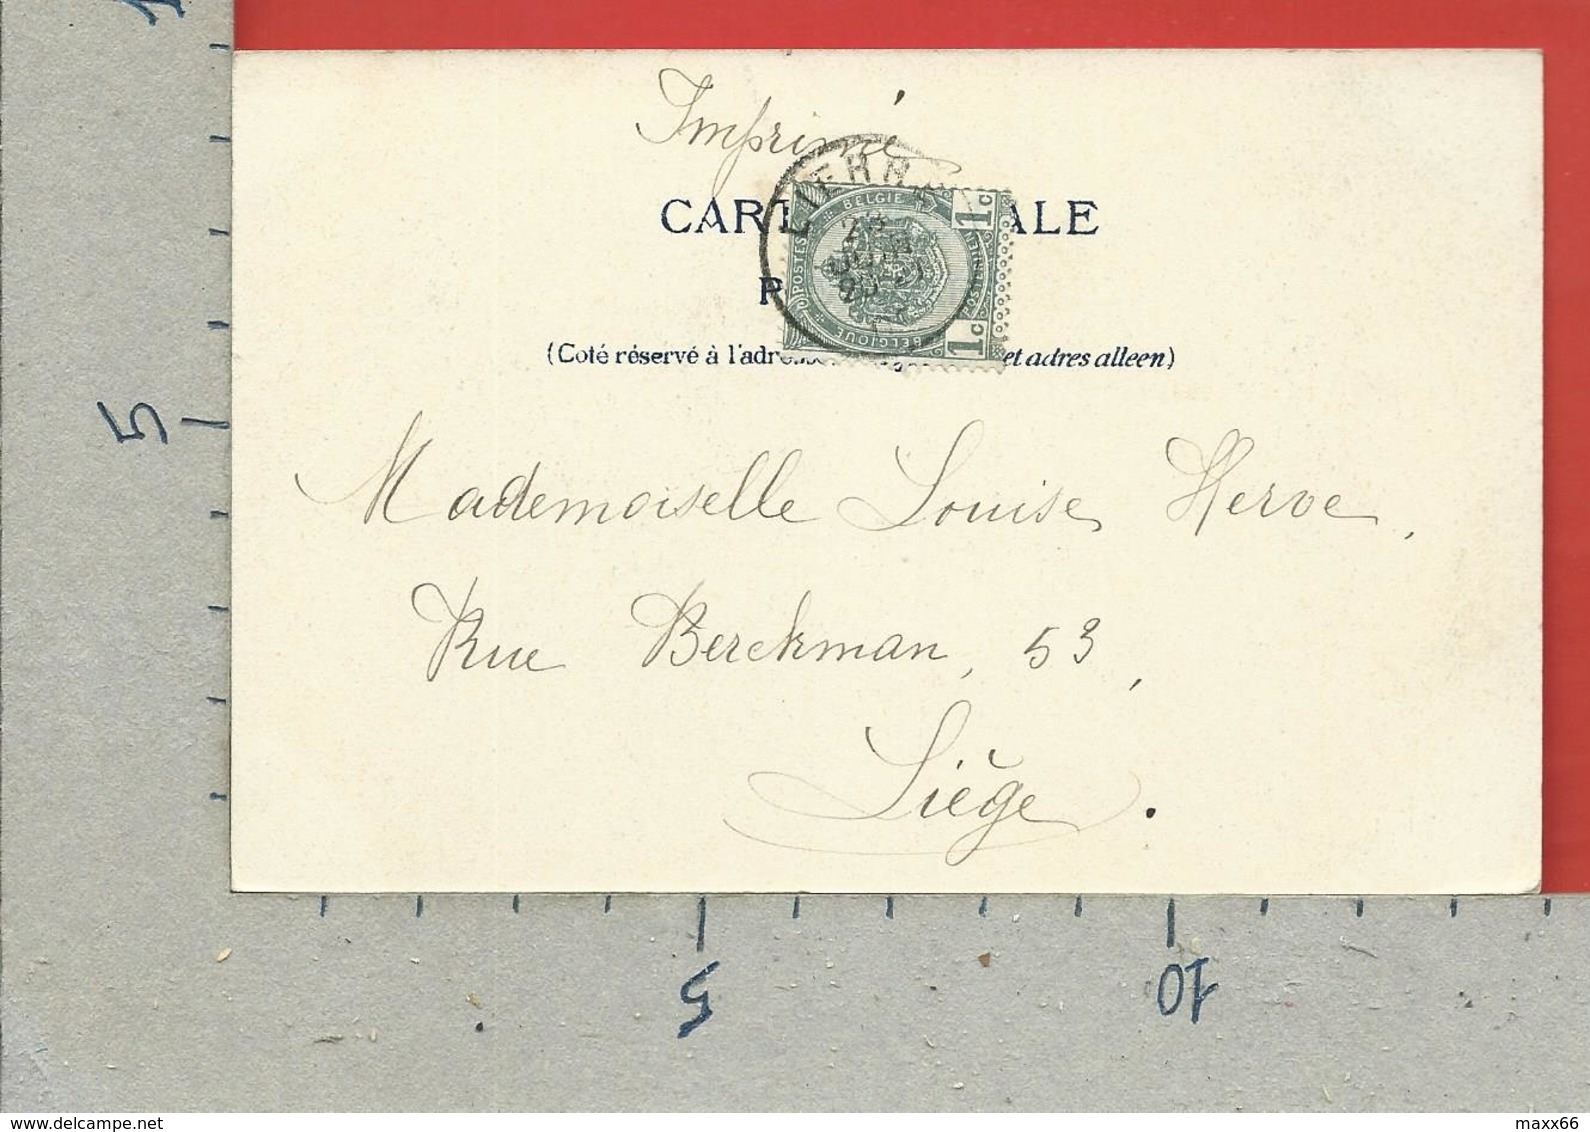 Imprimé
CART ALE
P
(Coté réservé à l'adresse et adres alleen)
LIERR
BELGIE
POSTES
BELGIQUE
1c
1c
Mademoiselle Louise Herve,
Rue Berckman, 53,
Liège.
5
5
10
www.delcampe.net
maxx66